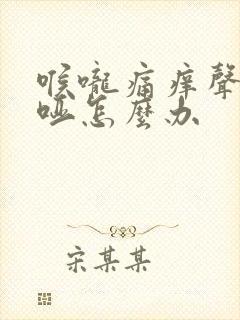 喉嚨痛痒聲
哑怎麼办
宋某某